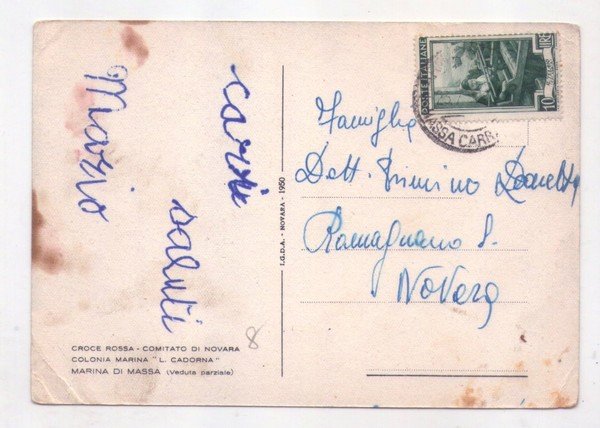 cari
saluti
Mario
CROCE ROSSA - COMITATO DI NOVARA
COLONIA MARINA "L. CADORNA"
MARINA DI MASSA (Veduta parziale)
8
I.G.D.A. - NOVARA - 1950
POSTE ITALIANE
LIRE
10
MASSA CARR.
Famiglia
Dott.
Romagnano S.
Novara